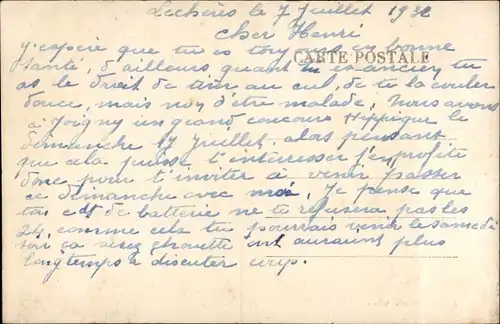 Lechères le 7 Juillet 1932
Cher Henri
CARTE POSTALE
J'espère que tu es toujours en bonne
santé, d'ailleurs quant tu es ancien tu
as le droit de tirer au cul, de te la couler
douce, mais non d'être malade, Nous avons
à Joigny un grand concours Hippique le
dimanche 17 Juillet, alors pensant
que cela puisse t'interresser j'en profite
donc pour t'inviter à venir passer
ce dimanche avec moi, Je pense que
ton cdt de batterie ne te refusera pas les
24, comme cela tu pourrais venir le samedi
soir ça et aurions plus
longtemps à discuter